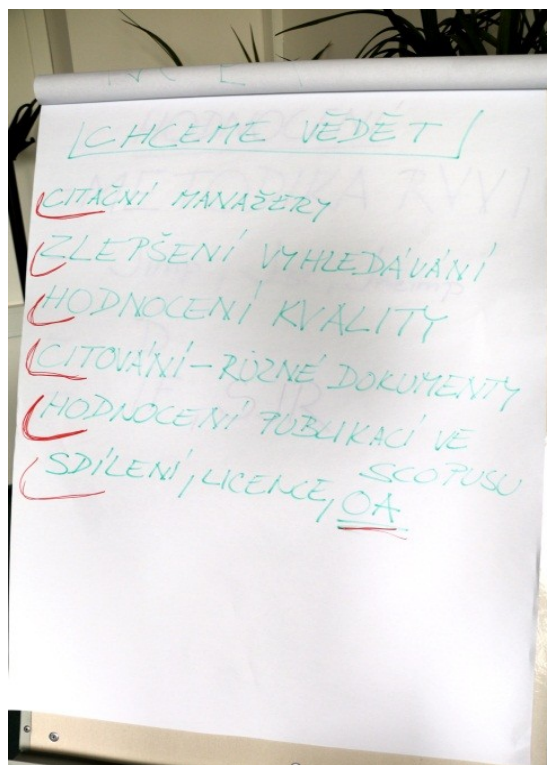 CHCEME VĚDĚT
CITAČNÍ MANAŽERY
ZLEPŠENÍ VYHLEDÁVÁNÍ
HODNOCENÍ KVALITY
CITOVÁNÍ – RŮZNÉ DOKUMENTY
HODNOCENÍ PUBLIKACÍ VE
SCOPUSU
SDÍLENÍ, LICENCE, OA